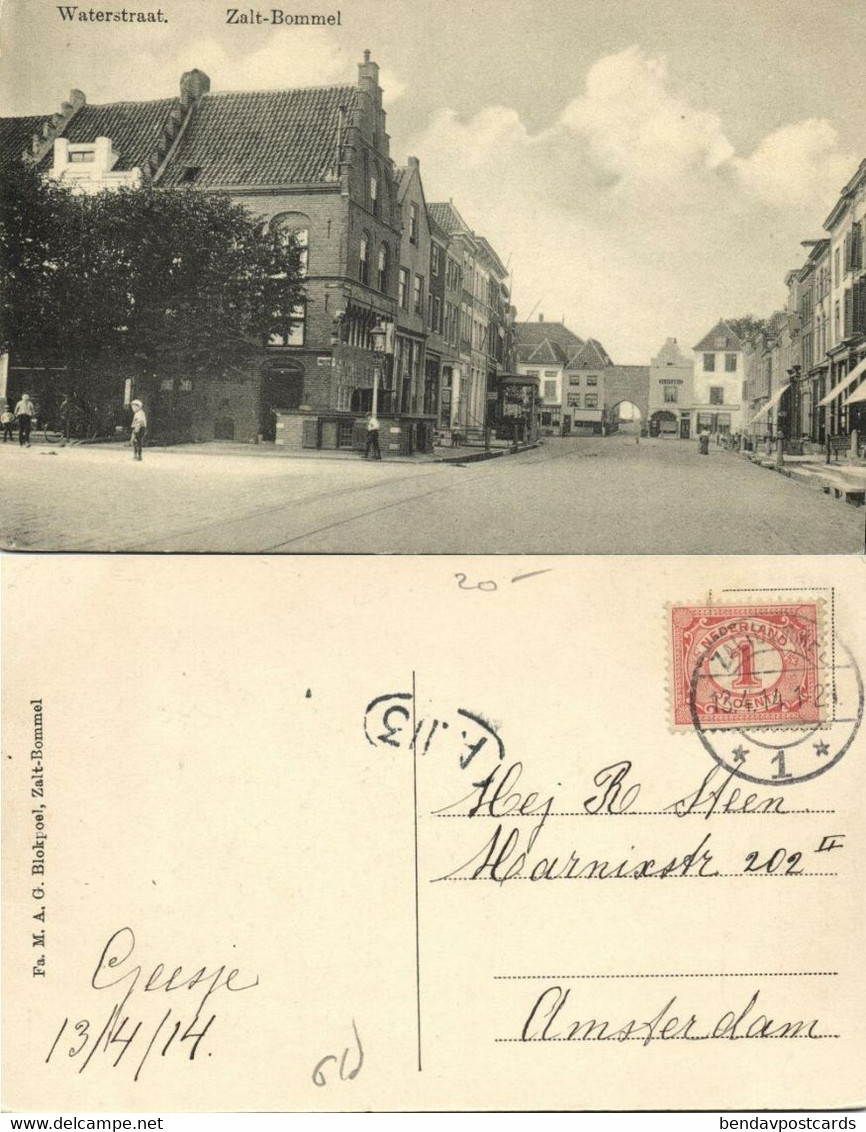 Waterstraat. Zalt-Bommel
20-
NEDERLAND
1
CENT
13.4.14
1
A.113
Fa. M. A. G. Blokpoel, Zalt-Bommel
Mej R Steen
Marnixstr 202 II
Amsterdam
Geesje
13/4/14.
bendavpostcards